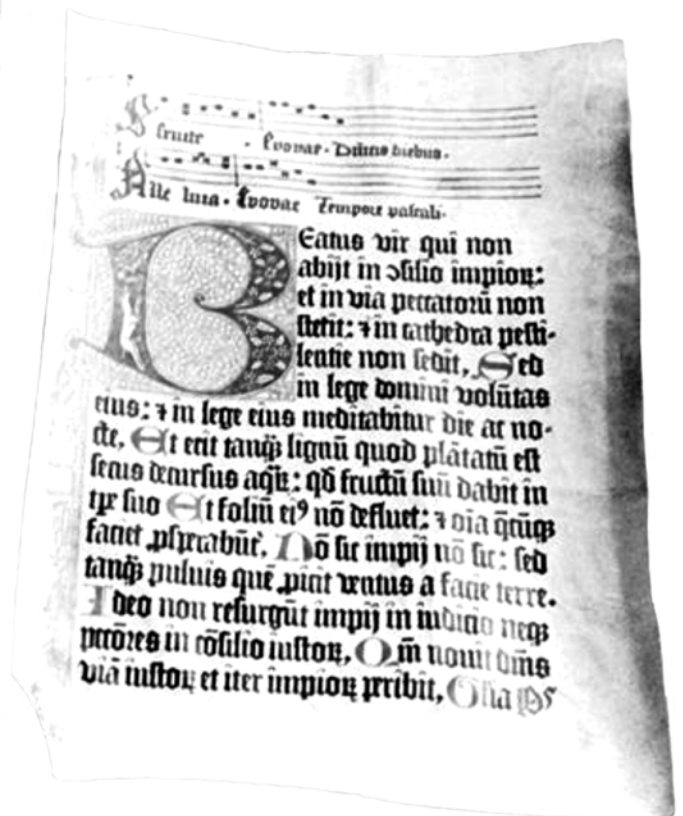 Seruite . Euouae. Diuinis diebus.
Alle luia. Euouae Tempore pascali.
Beatus vir qui non
abijt in ↄsilio impioꝝ:
et in via peccatorū non
stetit: ⁊ in cathedra pesti-
lentie non sedit, Sed
in lege domini volūtas
eius: ⁊ in lege eius meditabitur die ac no-
cte, Et erit tanqȝ lignū quod plātatū est
secus decursus aqꝝ: qđ fructū suū dabit in
tꝑe suo Et foliū eiꝰ nō defluet: ⁊ oīa q̄cūqȝ
faciet ꝓsperabūt᷑, Nō sic impij nō sic: sed
tanqȝ puluis quē ꝓicit ventus a facie terre.
Ideo non resurgūt impij in iudicio neqȝ
pccōres in cōsilio iustoꝝ, Qm̄ nouit dn̄s
viā iustoꝝ et iter impioꝝ peribit, Glīa Ps